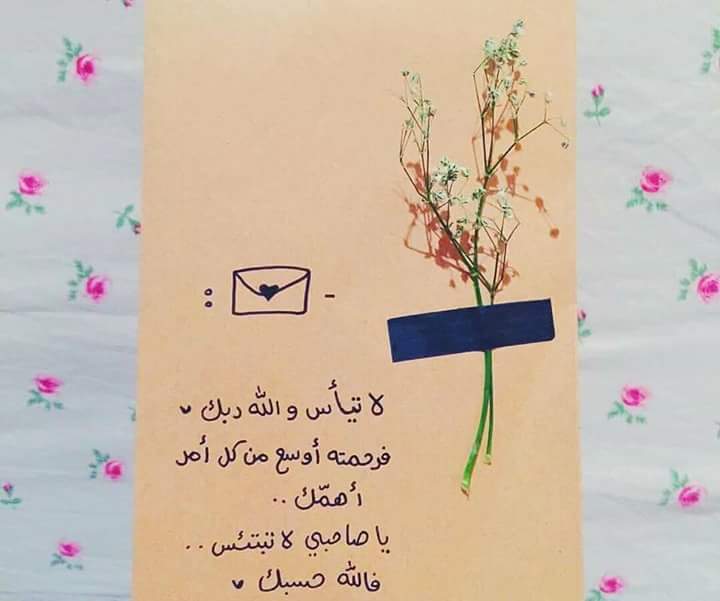 لا تيأس و الله ربك
فرحمته أوسع من كل أمر
أهمّك ..
يا صاحبي لا تبتئس ..
فالله حسبك